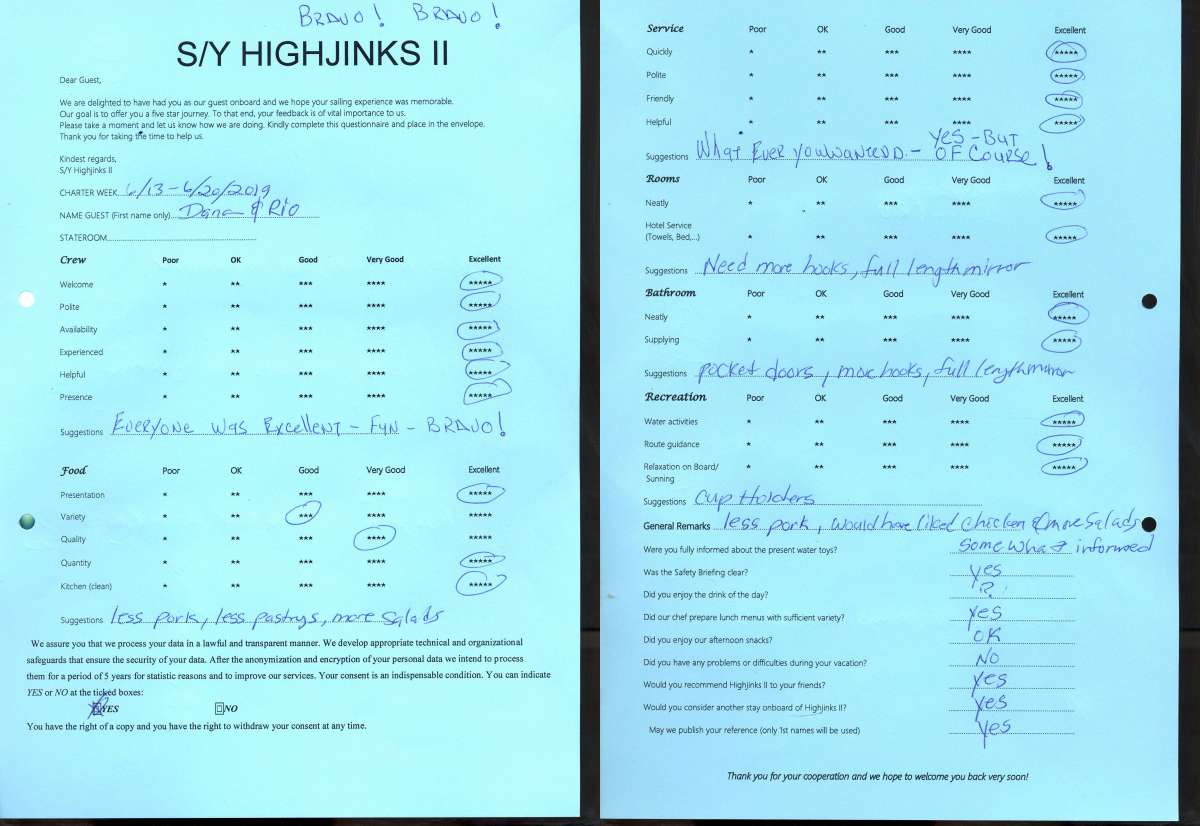 BRAVO! BRAVO!
S/Y HIGHJINKS II
Dear Guest,
We are delighted to have had you as our guest onboard and we hope your sailing experience was memorable.
Our goal is to offer you a five star journey. To that end, your feedback is of vital importance to us.
Please take a moment and let us know how we are doing. Kindly complete this questionnaire and place in the envelope.
Thank you for taking the time to help us.
Kindest regards,
S/Y Highjinks II
CHARTER WEEK 6/13 - 6/20/2019
NAME GUEST (First name only) Dana & Rio
STATEROOM
Crew Poor OK Good Very Good Excellent
Welcome * ** *** **** *****
Polite * ** *** **** *****
Availability * ** *** **** *****
Experienced * ** *** **** *****
Helpful * ** *** **** *****
Presence * ** *** **** *****
Suggestions EVERYONE WAS EXCELLENT - FUN - BRAVO!
Food Poor OK Good Very Good Excellent
Presentation * ** *** **** *****
Variety * ** *** **** *****
Quality * ** *** **** *****
Quantity * ** *** **** *****
Kitchen (clean) * ** *** **** *****
Suggestions less pork, less pastrys, more salads
We assure you that we process your data in a lawful and transparent manner. We develop appropriate technical and organizational
safeguards that ensure the security of your data. After the anonymization and encryption of your personal data we intend to process
them for a period of 5 years for statistic reasons and to improve our services. Your consent is an indispensable condition. You can indicate
YES or NO at the ticked boxes:
YES NO
You have the right of a copy and you have the right to withdraw your consent at any time.
Service Poor OK Good Very Good Excellent
Quickly * ** *** **** *****
Polite * ** *** **** *****
Friendly * ** *** **** *****
Helpful * ** *** **** *****
YES - BUT
Suggestions What Ever you wanted - OF COURSE!
Rooms Poor OK Good Very Good Excellent
Neatly * ** *** **** *****
Hotel Service
(Towels, Bed,...) * ** *** **** *****
Suggestions Need more hooks, full length mirror
Bathroom Poor OK Good Very Good Excellent
Neatly * ** *** **** *****
Supplying * ** *** **** *****
Suggestions pocket doors, more hooks, full length mirror
Recreation Poor OK Good Very Good Excellent
Water activities * ** *** **** *****
Route guidance * ** *** **** *****
Relaxation on Board/ * ** *** **** *****
Sunning
Suggestions Cup Holders
General Remarks less pork, would have liked chicken & more salads
Were you fully informed about the present water toys? Somewhat informed
Was the Safety Briefing clear? yes
Did you enjoy the drink of the day? ?
Did our chef prepare lunch menus with sufficient variety? yes
Did you enjoy our afternoon snacks? OK
Did you have any problems or difficulties during your vacation? No
Would you recommend Highjinks II to your friends? yes
Would you consider another stay onboard of Highjinks II? yes
May we publish your reference (only 1st names will be used) yes
Thank you for your cooperation and we hope to welcome you back very soon!